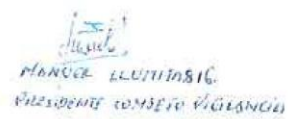 MANUEL LLUMITASIG.
PRESIDENTE CONSEJO VIGILANCIA